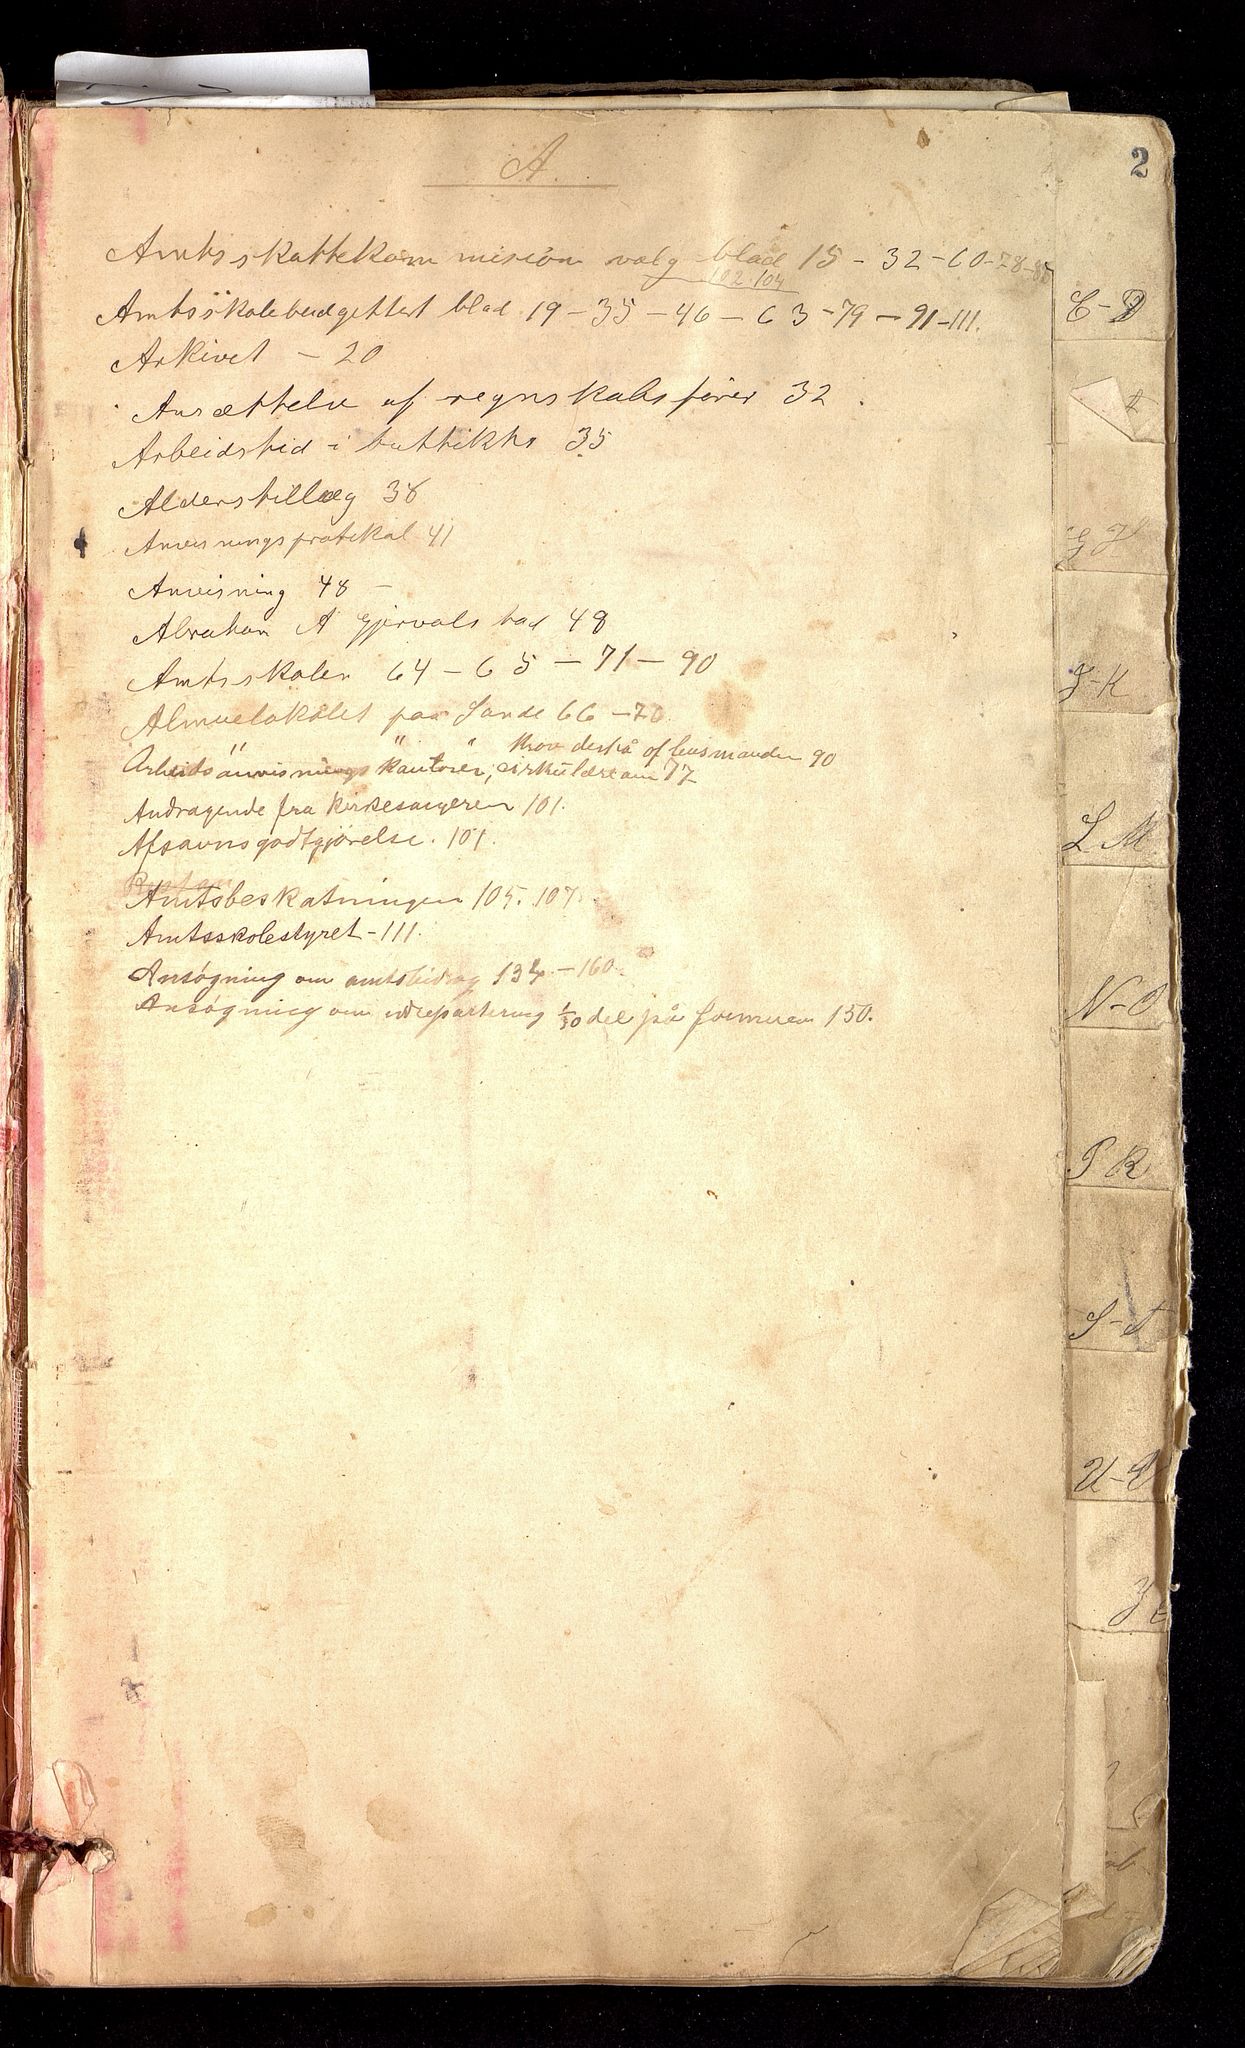 2
A.
Amtsskattekommision valg blad 15 - 32 - 60 - 78 - 85
102 - 104
Amtsskolebudgettet blad 19 - 35 - 46 - 63 - 79 - 91 - 111.
Arkivet - 20
Ansættelse af regnskabsfører 32.
Arbeidstid i buttikks 35
Alderstillæg 38
Anvisningsprotokal 41
Anvisning 48 -
Abraham A Gjervolstad 48
Amtsskolen 64 - 65 - 71 - 90
Almuelokalet paa Sande 66 - 70
" " " Krav derpå af lensmanden 90
Arbeidsanvisningskontorer, cirkulære om 77
Andragende fra kirkesangeren 101.
Afsavnsgodtgjørelse. 101.
Amtsbeskatningen 105. 107.
Amtsskolestyret - 111.
Ansøgning om amtsbidrag 134. - 160.
Ansøgning om udrepartering 1/30 del på formuen 150.
C - D
G H
J - K
L M
N - O
P R
S - T
U - V